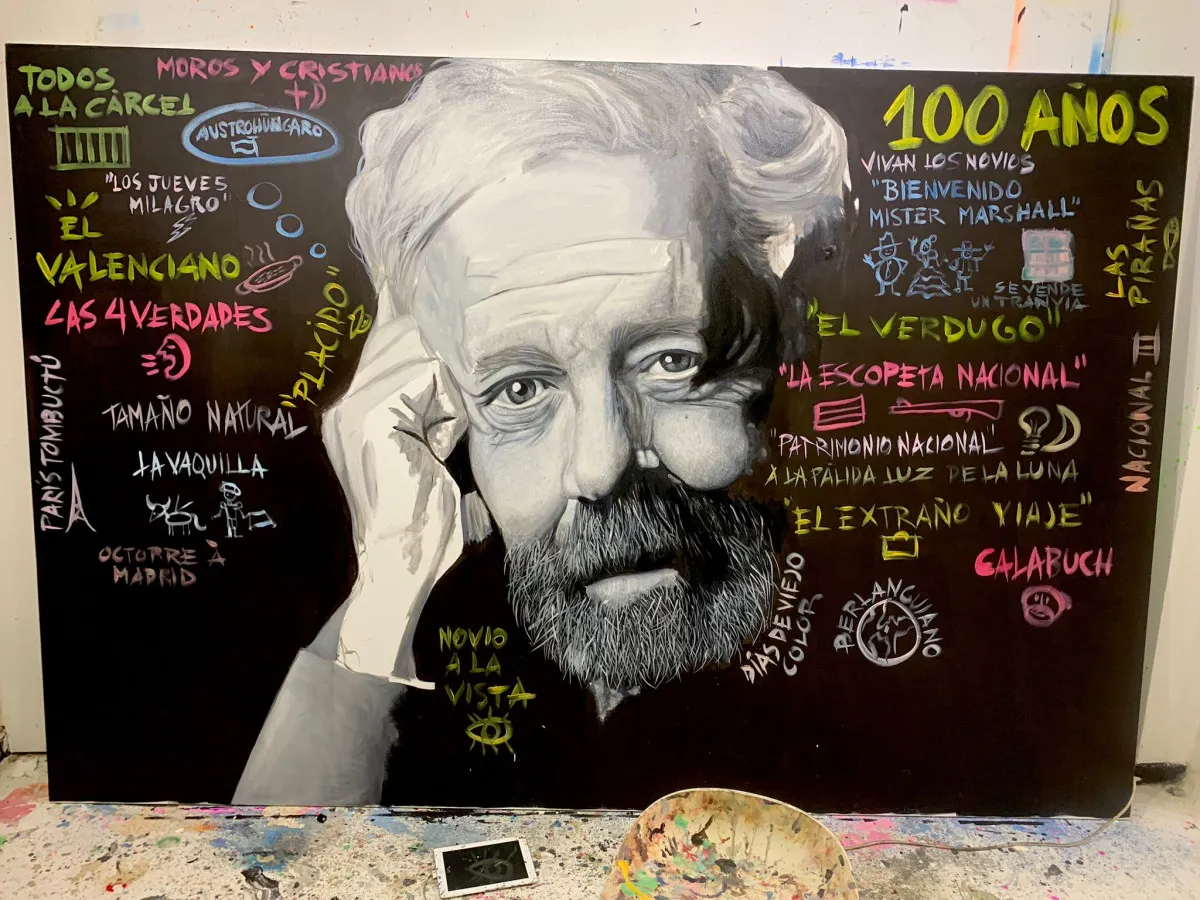 TODOS
A LA CÀRCEL
MOROS Y CRISTIANOS
+D
AUSTROHÚNGARO
"LOS JUEVES
MILAGRO"
EL
VALENCIANO
LAS 4 VERDADES
"PLACIDO"
PARÍS TOMBUCTÚ
TAMAÑO NATURAL"
LA VAQUILLA
OCTOPRE À
MADRID
NOVIO
A LA
VISTA
100 AÑOS
VIVAN LOS NOVIOS
"BIENVENIDO
MISTER MARSHALL"
SE VENDE
UN TRANVIA
LAS
PIRAÑAS
"EL VERDUGO"
"LA ESCOPETA NACIONAL"
NACIONAL III
"PATRIMONIO NACIONAL"
A LA PÁLIDA LUZ DE LA LUNA
"EL EXTRAÑO VIAJE"
CALABUCH
DÍAS DE VIEJO
COLOR
BERLANGUIANO